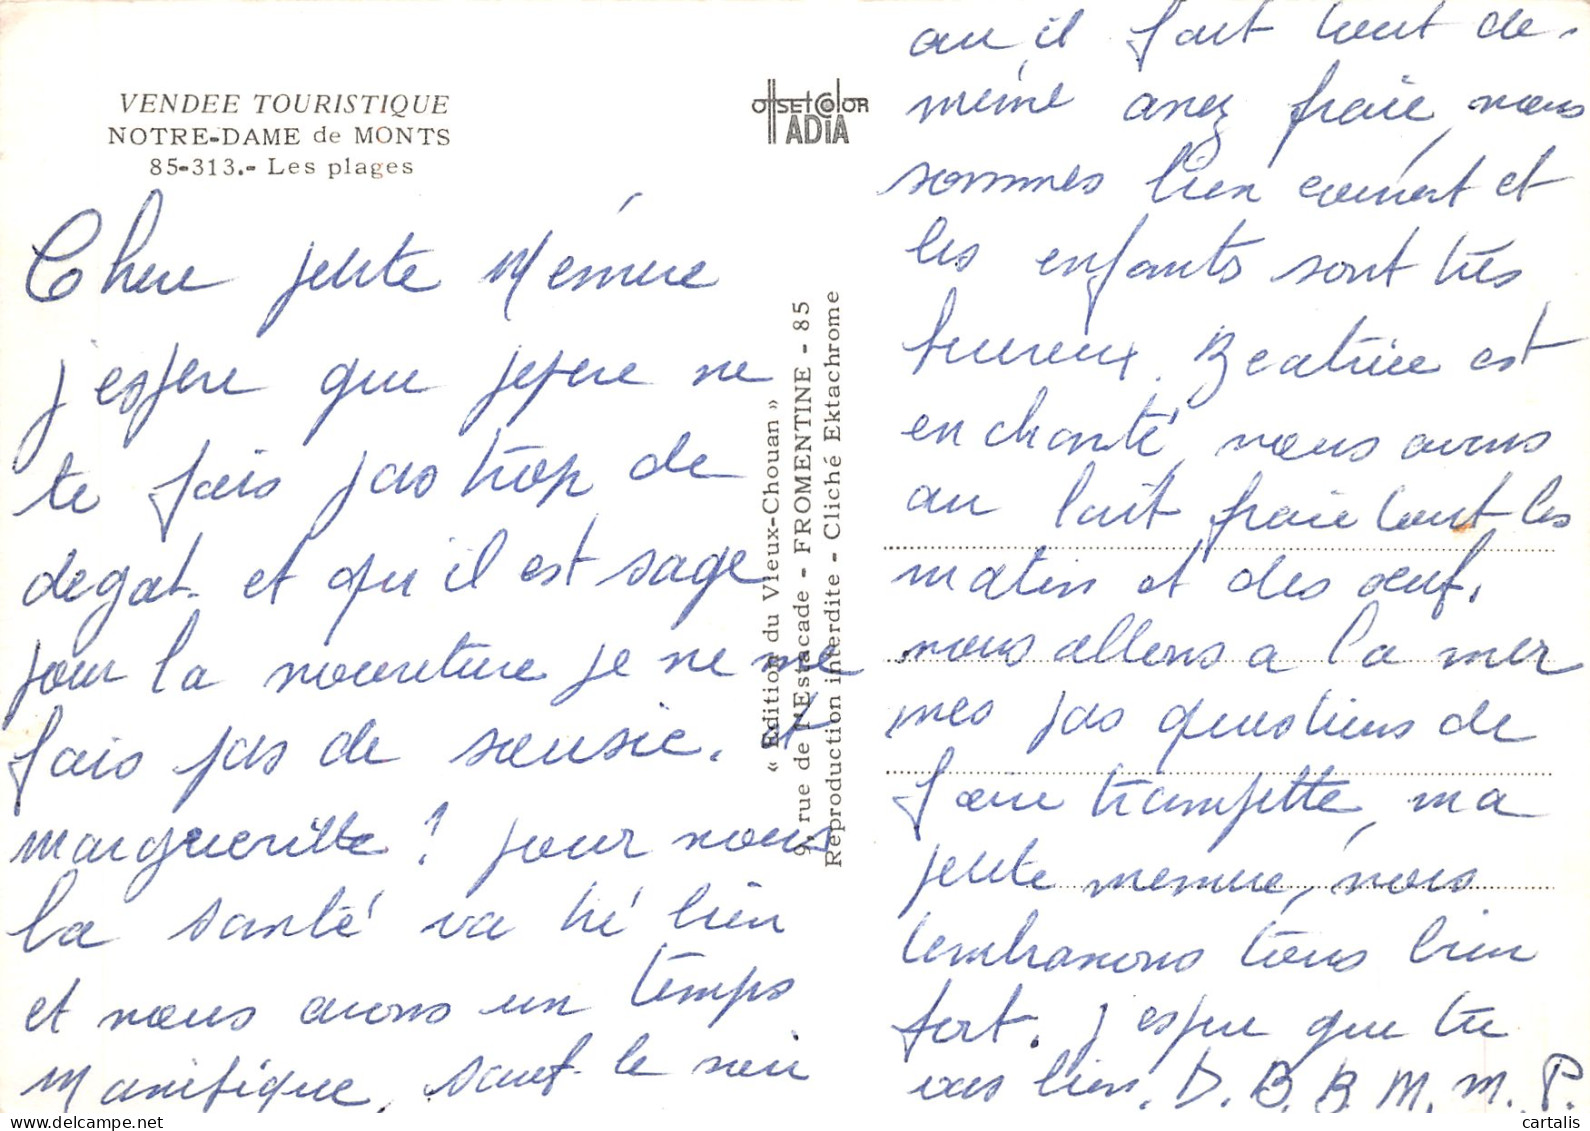 VENDEE TOURISTIQUE
NOTRE-DAME de MONTS
85-313.- Les plages
OffSEt COlOR
IADIA
« Edition du Vieux-Chouan »
9, rue de l'Estacade - FROMENTINE - 85
Reproduction interdite - Cliché Ektachrome
Chere petite Mémere
j'espere que pepere ne
te fais pas trop de
degat. et qu'il est sage
pour la nouriture je ne me
fais pas de sousie. et
margueritte ? pour nous
la santé va tré bien
et nous avons un temps
manifique, sauf le soir
ou il fait tout de
meme assez fraie, nous
sommes bien couvert et
les enfants sont très
hureux. Beatrice est
enchanté, nous avons
au lait fraie tout les
matin et des oeuf.
nous allons a la mer
mes pas questions de
faire trampette, ma
petite memere, nous
t'embrassons tous bien
fort. j'espere que tu
vas bien. D. B. B. M. M. P.
cartalis.com